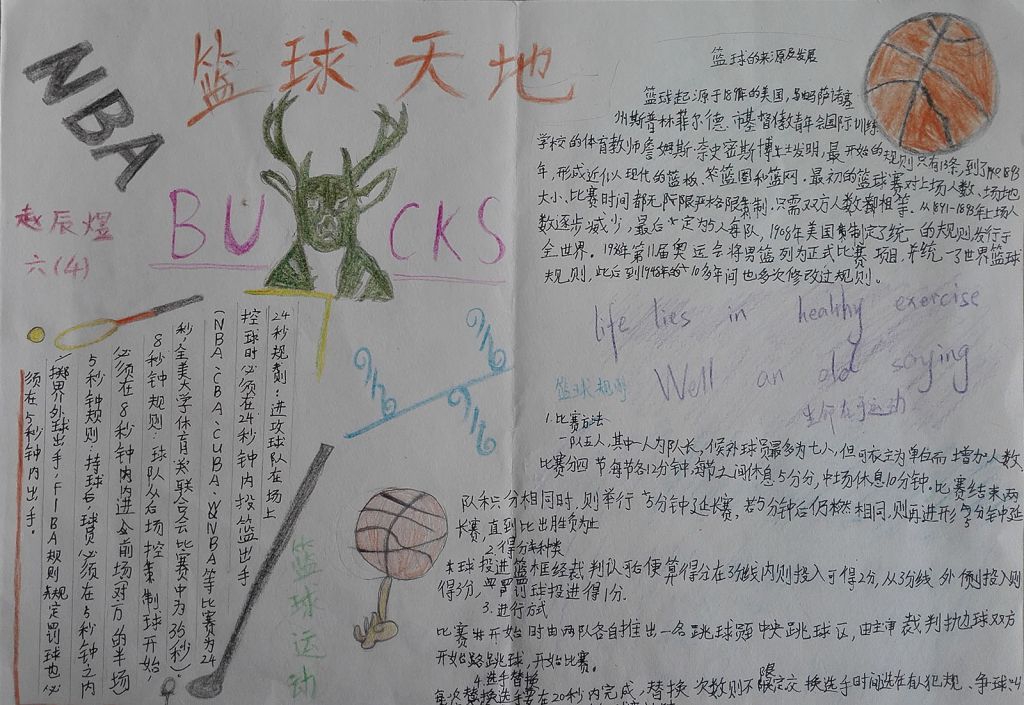 NBA
篮球天地
BUCKS
赵辰煜
六(4)
24秒规则:进攻球队在场上
控球时必须在24秒钟内投篮出手
(NBA、CBA、CUBA、WNBA等比赛为24
秒,全美大学体育联合会比赛中为35秒)
8秒钟规则:球队从后场控制球开始,
必须在8秒钟内进全前场对方的半场
5秒钟规则:持球后,球员必须在5秒钟之内
掷界外球出手,FIBA规则规定罚球也必
须在5秒钟内出手。
篮球运动
篮球的来源及发展
篮球起源于的美国,马萨诸塞
州斯普林菲尔德,市基督教青年会国际训练
学校的体育教师詹姆斯·奈史密斯博士发明,最开始的规则只有13条,到了1893
年,形成近似现代的篮板、篮圈和篮网。最初的篮球赛对上场人数、场地
大小、比赛时间都无严格限制,只需双方人数相等。从1891-1893年上场人
数逐步减少,最后定为5人每队,1908年美国制定了统一的规则发行于
全世界。1936年第11届奥运会将男篮列为正式比赛项目,并统一了世界篮球
规则,此后到1948年的10多年间也多次修改过规则。
life lies in healthy exercise
Well an old saying
生命在于运动
篮球规则
1.比赛方法
一队五人,其中一人为队长,候补球员最多为七人,但可依主为单位而增加人数,
比赛分四节每节各12分钟,每节之间休息5分分,中场休息10分钟。比赛结束两
队积分相同时,则举行5分钟延长赛,若5分钟后仍然相同,则再进形5分钟延
长赛,直到比出胜负为止
2.得分种类
球投进篮框经裁判认可后便算得分在3分线内则投入可得2分,从3分线外侧投入则
得3分,罚球投进得1分.
3.进行方式
比赛开始时由两队各自推出一名跳球至中央跳球区,由主审裁判执边球双方
开始跳球,开始比赛。
4.选手替换
每次替换选手要在20秒内完成,替换次数则不限定交换选手时间选在有人犯规、争球